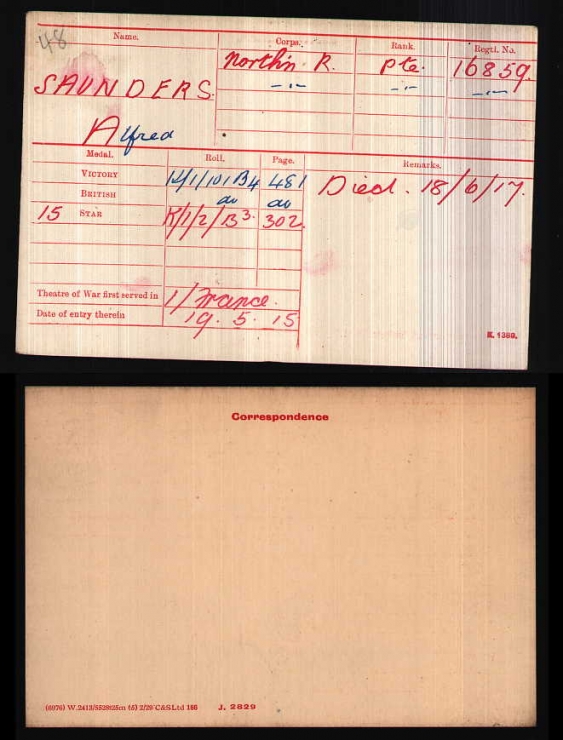 48
Name. Corps. Rank. Regtl. No.
North'n R. Pte. 16859.
SAUNDERS. —"— —"— —"—
Alfred
Medal. Roll. Page. Remarks.
VICTORY K/1/101B4 481 Died. 18/6/17.
BRITISH do do
15 STAR K/1/2/B3. 302.
Theatre of War first served in 1/France.
Date of entry therein 19. 5. 15
K. 1380.
Correspondence
(6976) W.2413/5528 2/20 C&S Ltd 186 J. 2829